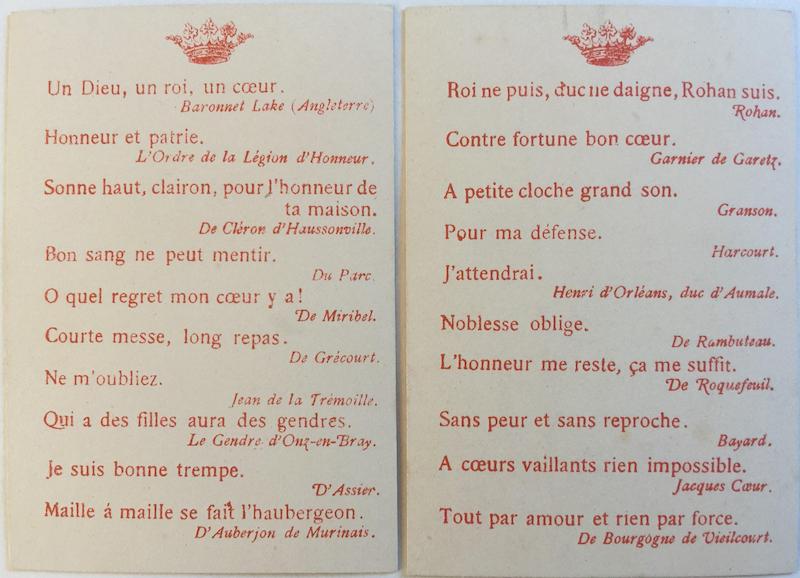 Un Dieu, un roi, un cœur.
Baronnet Lake (Angleterre)
Honneur et patrie.
L'Ordre de la Légion d'Honneur.
Sonne haut, clairon, pour l'honneur de
ta maison.
De Cléron d'Haussonville.
Bon sang ne peut mentir.
Du Parc.
O quel regret mon cœur y a!
De Miribel.
Courte messe, long repas.
De Grécourt.
Ne m'oubliez.
Jean de la Trémoille.
Qui a des filles aura des gendres.
Le Gendre d'Onz-en-Bray.
Je suis bonne trempe.
D'Assier.
Maille á maille se fait l'haubergeon.
D'Auberjon de Murinais.
Roi ne puis, duc ne daigne, Rohan suis.
Rohan.
Contre fortune bon cœur.
Garnier de Garetz.
A petite cloche grand son.
Granson.
Pour ma défense.
Harcourt.
J'attendrai.
Henri d'Orléans, duc d'Aumale.
Noblesse oblige.
De Rambuteau.
L'honneur me reste, ça me suffit.
De Roquefeuil.
Sans peur et sans reproche.
Bayard.
A cœurs vaillants rien impossible.
Jacques Cœur.
Tout par amour et rien par force.
De Bourgogne de Vieilcourt.